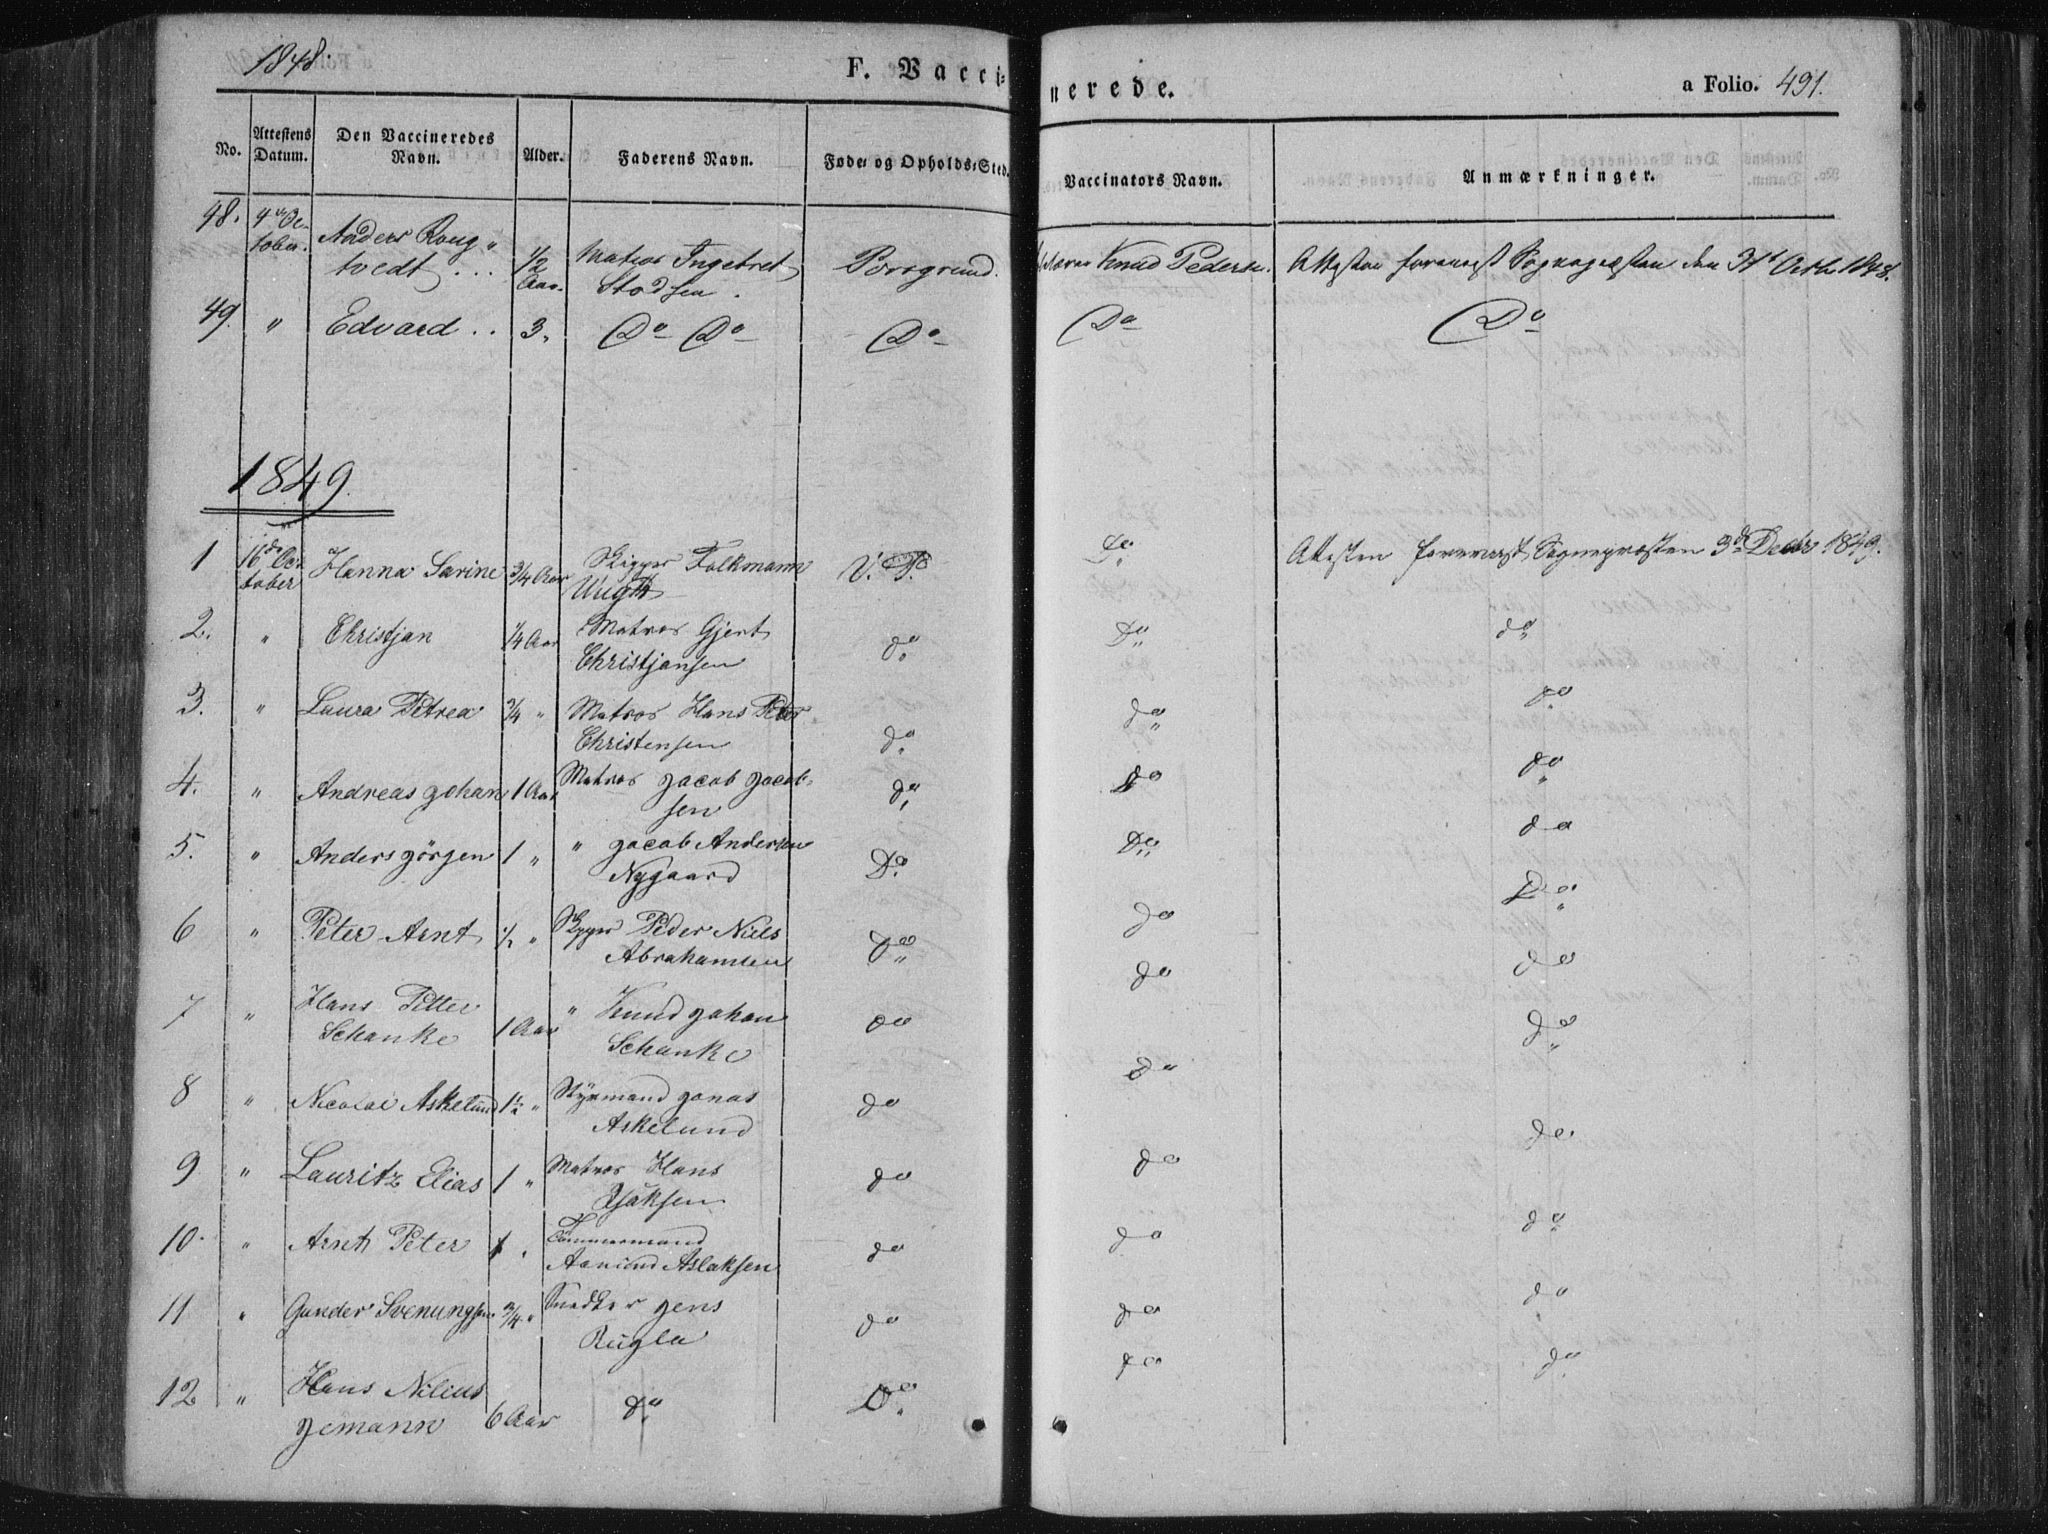 1848.
F. Vacci-
nerede.
a Folio. 491.
No. Attestens Datum. Den Vaccineredes Navn. Alder. Faderens Navn. Føde- og Opholds-Sted. Vaccinators Navn. Anmærkninger.
48. 4de Oc- Anders Roug
tober. tvedt . . . 1/2 Aar. Matros Ingebret Porsgrund. Knud Pedersen. Attesten foreviist Sognepræsten den 31te Octbr 1848.
Stodsen.
49. " Edvard . . 3. Do Do Do Do Do
1849.
1 16de Oc- Hanna Sarine 3/4 Aar Skipper Folkmann V. P. Do Attesten foreviist Sognepræsten 3d Decbr 1849.
tober
2. " Christjan 1/4 Aar Matros Gjert do Do do
Christjansen
3. " Laura Petrea 3/4 " Matros Hans Peder do do
Christensen do
4. " Andreas Johan 1 Aar Matros Jacob Jacob- do do do
sen
5. " Anders Jörgen 1 " " Jacob Andersen Do. Do do
Nygaard
6 " Peter Arnt 1/2 " Skipper Peder Niels do do Do
Abrahamsen
7 " Hans Petter " Knud Johan do do
Schanke 1 Aar Schanke do do
8 " Nicolai Askelund 1 1/2 " Styrmand Jonas do do
Askelund
9 " Lauritz Elias 1 " Matros Hans do do do
Isaksen
10. " Arnt Peter 1 " Tømmermand do do do
Aamund Aslaksen
11 " Gunder Svenungsen 3/4 " Snedker Jens do do do
Rugla
12 " Hans Nilius do Do do do
Jemann 6 Aar